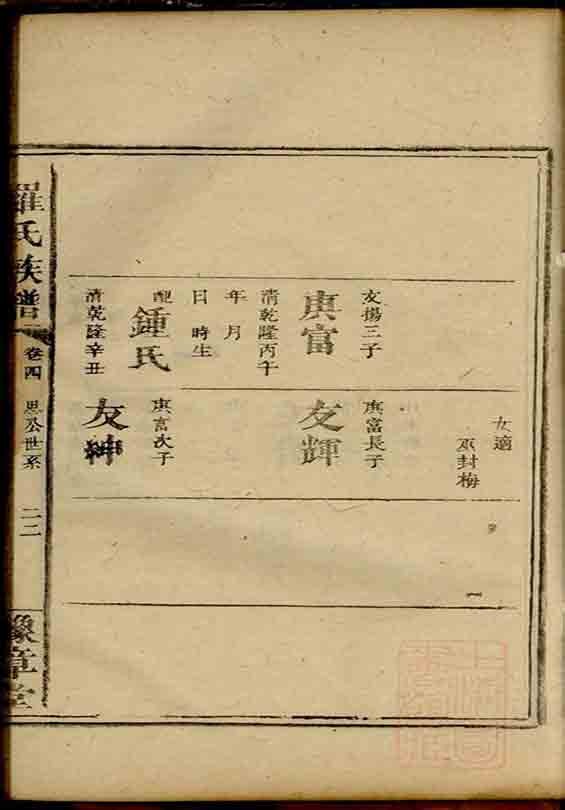 友揚三子
庚富
清乾隆丙午
年 月
日 時生
配
鍾氏
清乾隆辛丑
女適
巫封梅
庚富長子
友輝
庚富次子
友紳
羅氏族譜
卷四
思公世系
二二
豫章堂
上海圖
書館藏